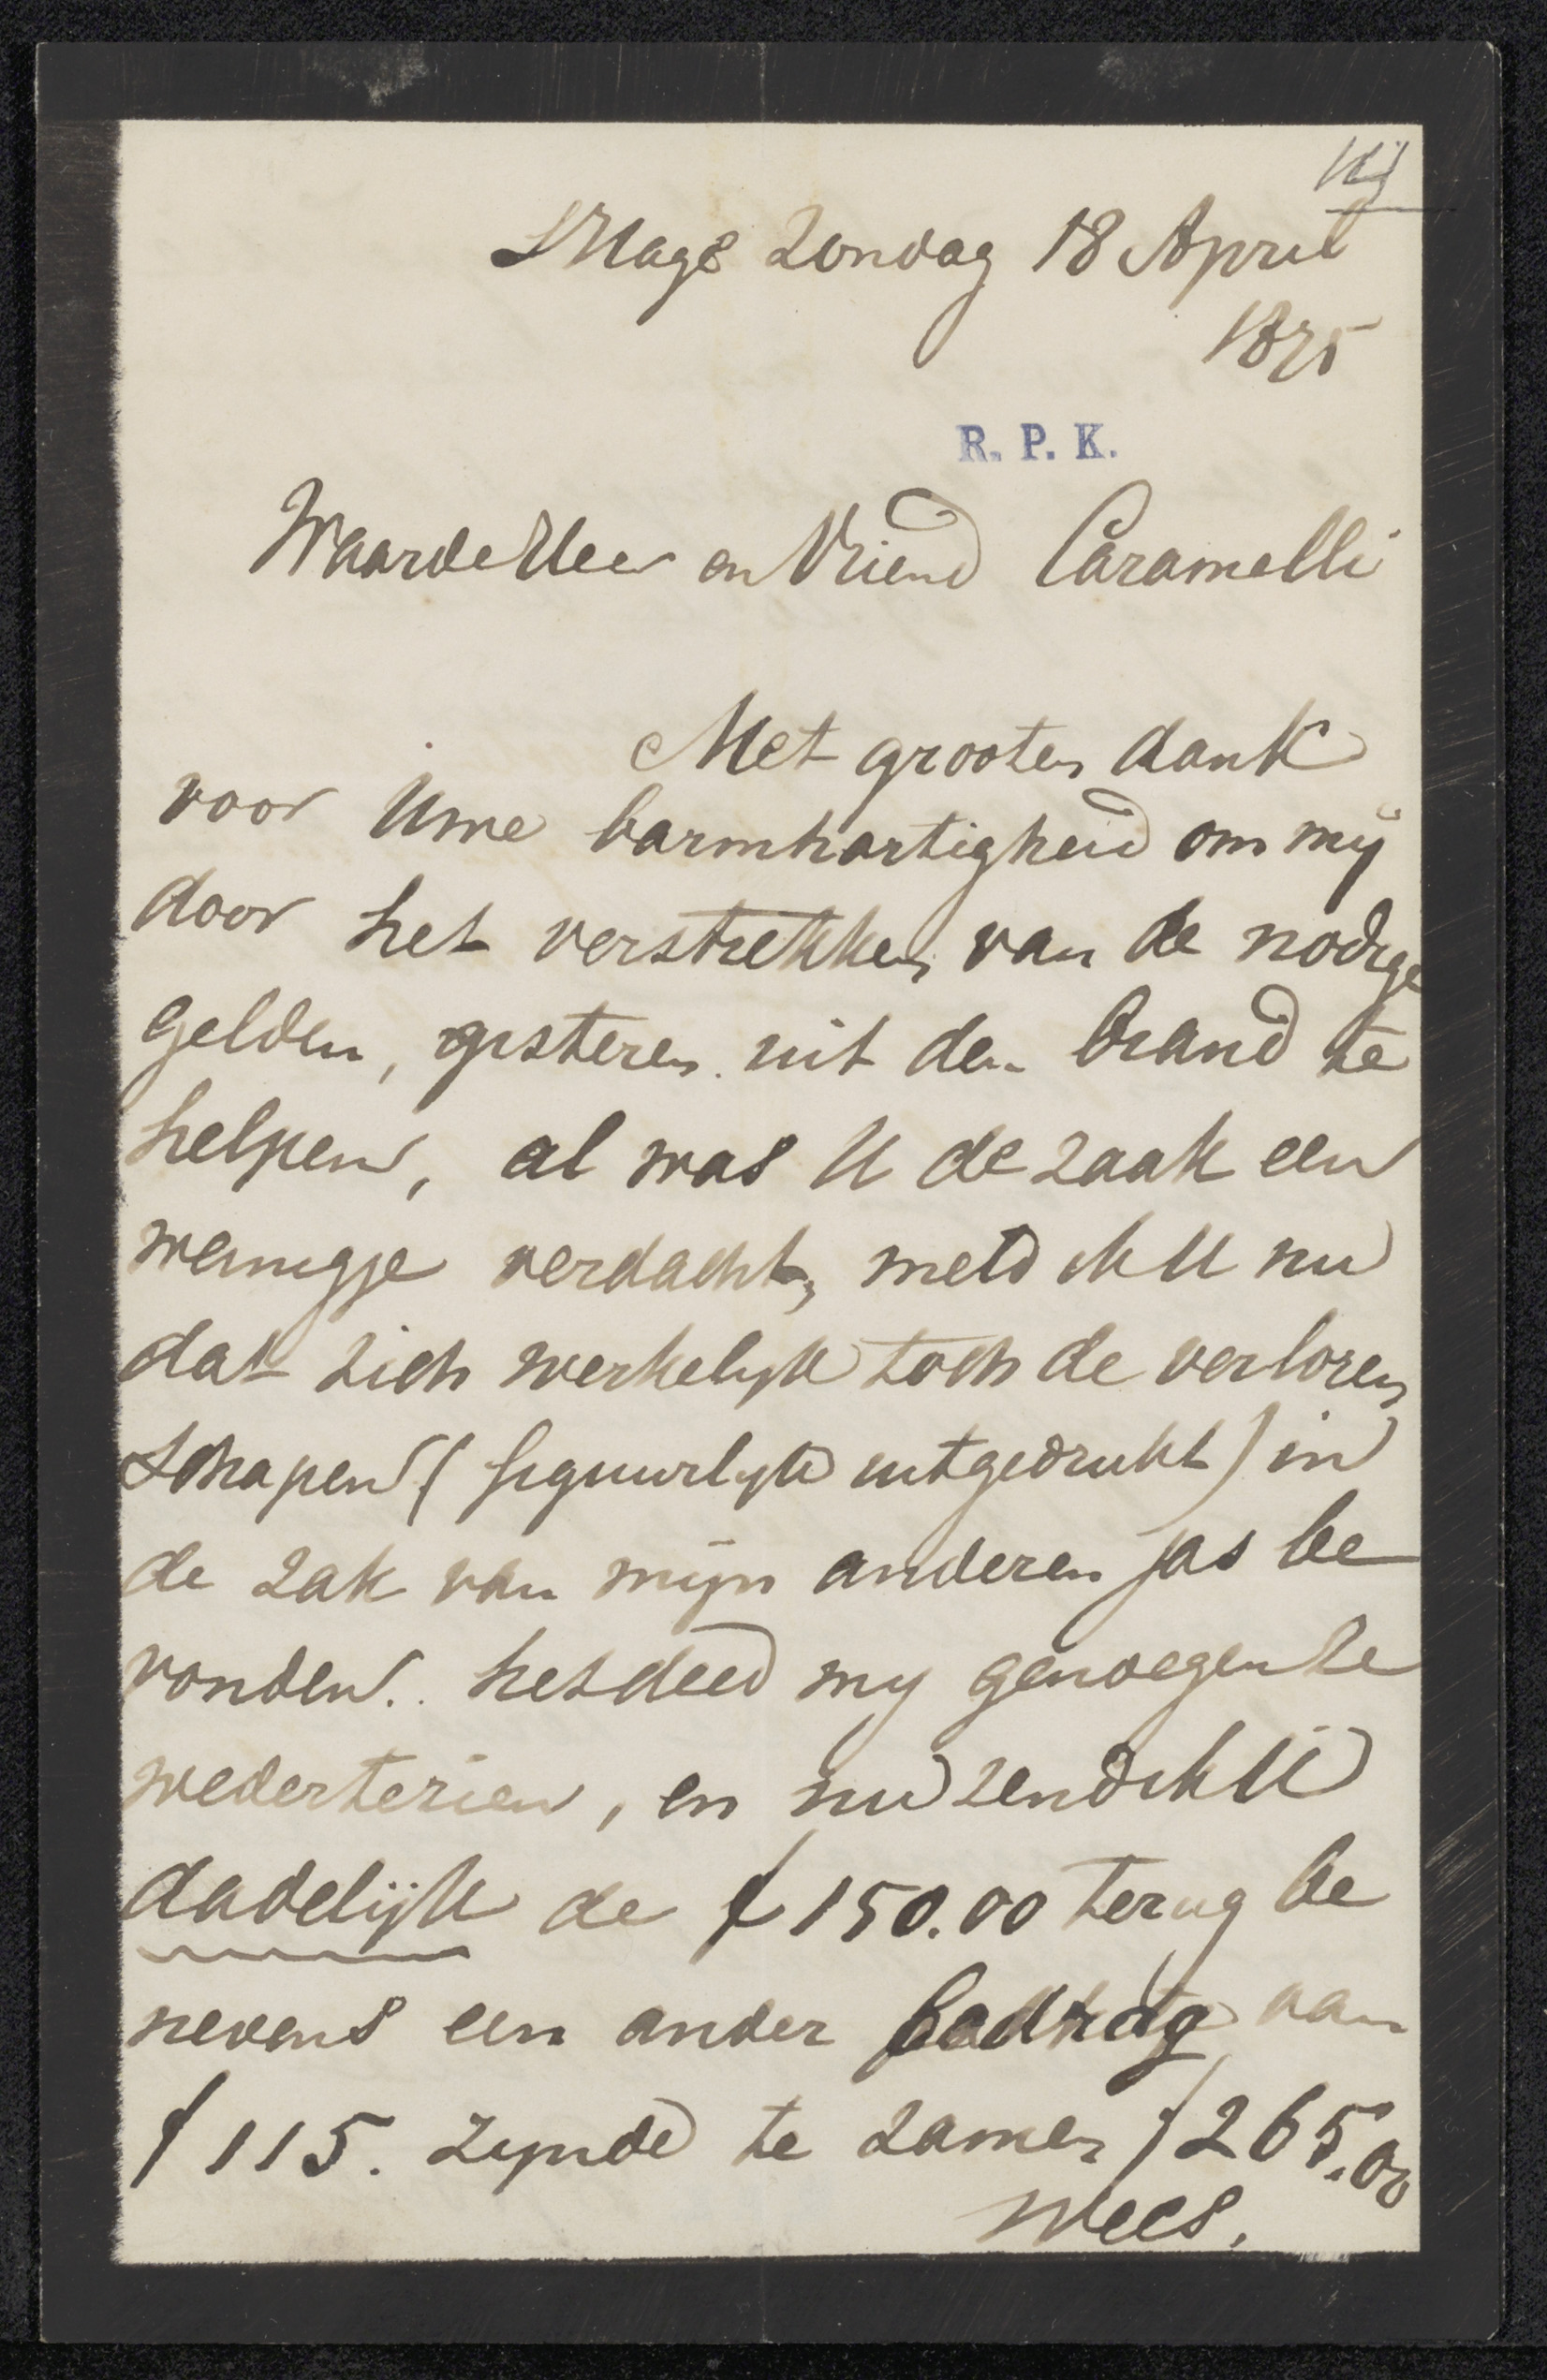 SHage Zondag 18 April
1875
R. P. K.
Waarde Heer en Vriend Caramelli
Met grooten dank
voor Uwe barmhartigheid om mij
door het verstrekken van de nodige
gelden, gisteren uit den brand te
helpen, al was U de zaak een
wenigje verdacht, meld ik U nu
dat zich werkelijk toch de verloren
schapen (figuurlijk uitgedrukt) in
de zak van mijn anderen jas be
vonden.. het deed my genoegen ze
wederterzien, en nu zend ik U
dadelijk de f 150.00 terug be
nevens een ander bedrag van
f 115. zynde te zamen f 265.00
Wees,